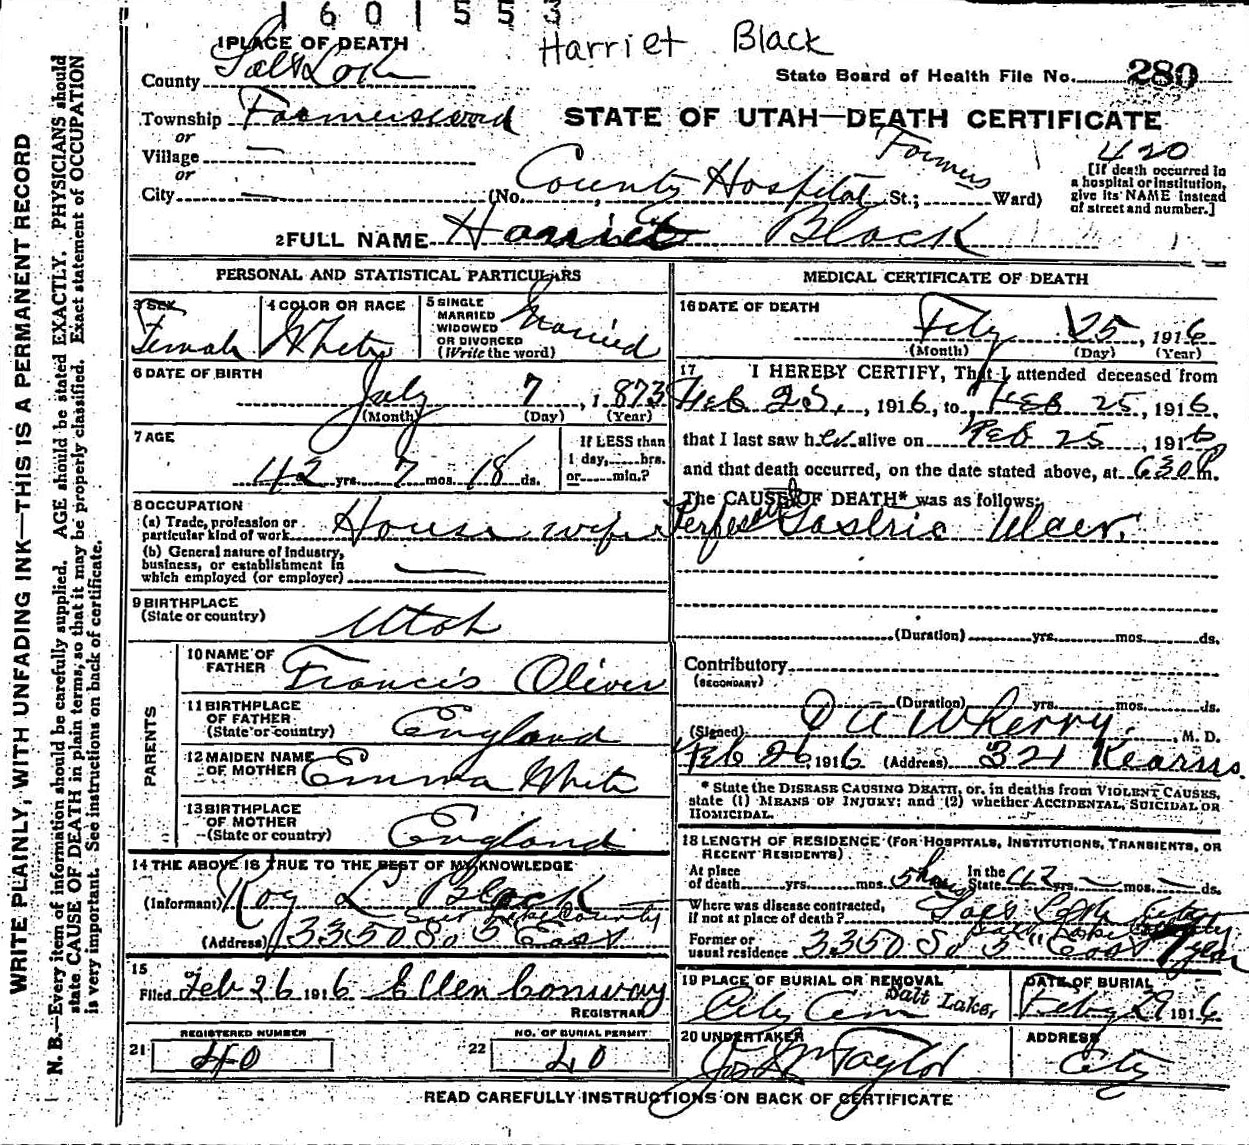 1601553
Harriet Black
1 PLACE OF DEATH
County Salt Lake
State Board of Health File No. 280
Township Farmers ward
STATE OF UTAH—DEATH CERTIFICATE
or
Village —
or
City — (No. County Hospital St.; Farmers Ward)
420
[If death occurred in a hospital or institution, give its NAME instead of street and number.]
2 FULL NAME Harriet Black
PERSONAL AND STATISTICAL PARTICULARS
3 SEX Female
4 COLOR OR RACE White
5 SINGLE MARRIED WIDOWED OR DIVORCED (Write the word) Married
6 DATE OF BIRTH July 7, 1873
(Month) (Day) (Year)
7 AGE 42 yrs. 7 mos. 18 ds.
If LESS than 1 day, hrs. or min.?
8 OCCUPATION
(a) Trade, profession or particular kind of work House wife
(b) General nature of Industry, business, or establishment in which employed (or employer) —
9 BIRTHPLACE (State or country) Utah
PARENTS
10 NAME OF FATHER Francis Oliver
11 BIRTHPLACE OF FATHER (State or country) England
12 MAIDEN NAME OF MOTHER Emma White
13 BIRTHPLACE OF MOTHER (State or country) England
14 THE ABOVE IS TRUE TO THE BEST OF MY KNOWLEDGE
(Informant) Roy L Black
Salt Lake County
(Address) 3350 So 5" East
15
Filed Feb 26 1916 Ellen Conway
REGISTRAR
REGISTERED NUMBER
21 40
NO. OF BURIAL PERMIT
22 40
MEDICAL CERTIFICATE OF DEATH
16 DATE OF DEATH Feby 25, 1916
(Month) (Day) (Year)
17 I HEREBY CERTIFY, That I attended deceased from
Feb 25, 1916, to Feb 25, 1916,
that I last saw her alive on Feb 25 1916
and that death occurred, on the date stated above, at 630 P m.
The CAUSE OF DEATH* was as follows:
Gastric Ulcer.
(Duration) yrs. mos. ds.
Contributory
(SECONDARY)
(Duration) yrs. mos. ds.
(Signed) Wherry, M. D.
Feb 26, 1916 (Address) 321 Kearns.
* State the DISEASE CAUSING DEATH, or, in deaths from VIOLENT CAUSES, state (1) MEANS OF INJURY; and (2) whether ACCIDENTAL, SUICIDAL OR HOMICIDAL.
18 LENGTH OF RESIDENCE (FOR HOSPITALS, INSTITUTIONS, TRANSIENTS, OR RECENT RESIDENTS)
At place of death yrs. mos. 5 hours In the State 42 yrs. — mos. — ds.
Where was disease contracted, if not at place of death? Salt Lake City
Salt Lake County
Former or usual residence 3350 So 5" East 1 year
19 PLACE OF BURIAL OR REMOVAL City Cem Salt Lake,
DATE OF BURIAL Feby 29 1916
20 UNDERTAKER Jos Wm Taylor
ADDRESS City
READ CAREFULLY INSTRUCTIONS ON BACK OF CERTIFICATE
WRITE PLAINLY, WITH UNFADING INK—THIS IS A PERMANENT RECORD
N. B.—Every item of information should be carefully supplied. AGE should be stated EXACTLY. PHYSICIANS should
state CAUSE OF DEATH in plain terms, so that it may be properly classified. Exact statement of OCCUPATION
is very important. See instructions on back of certificate.